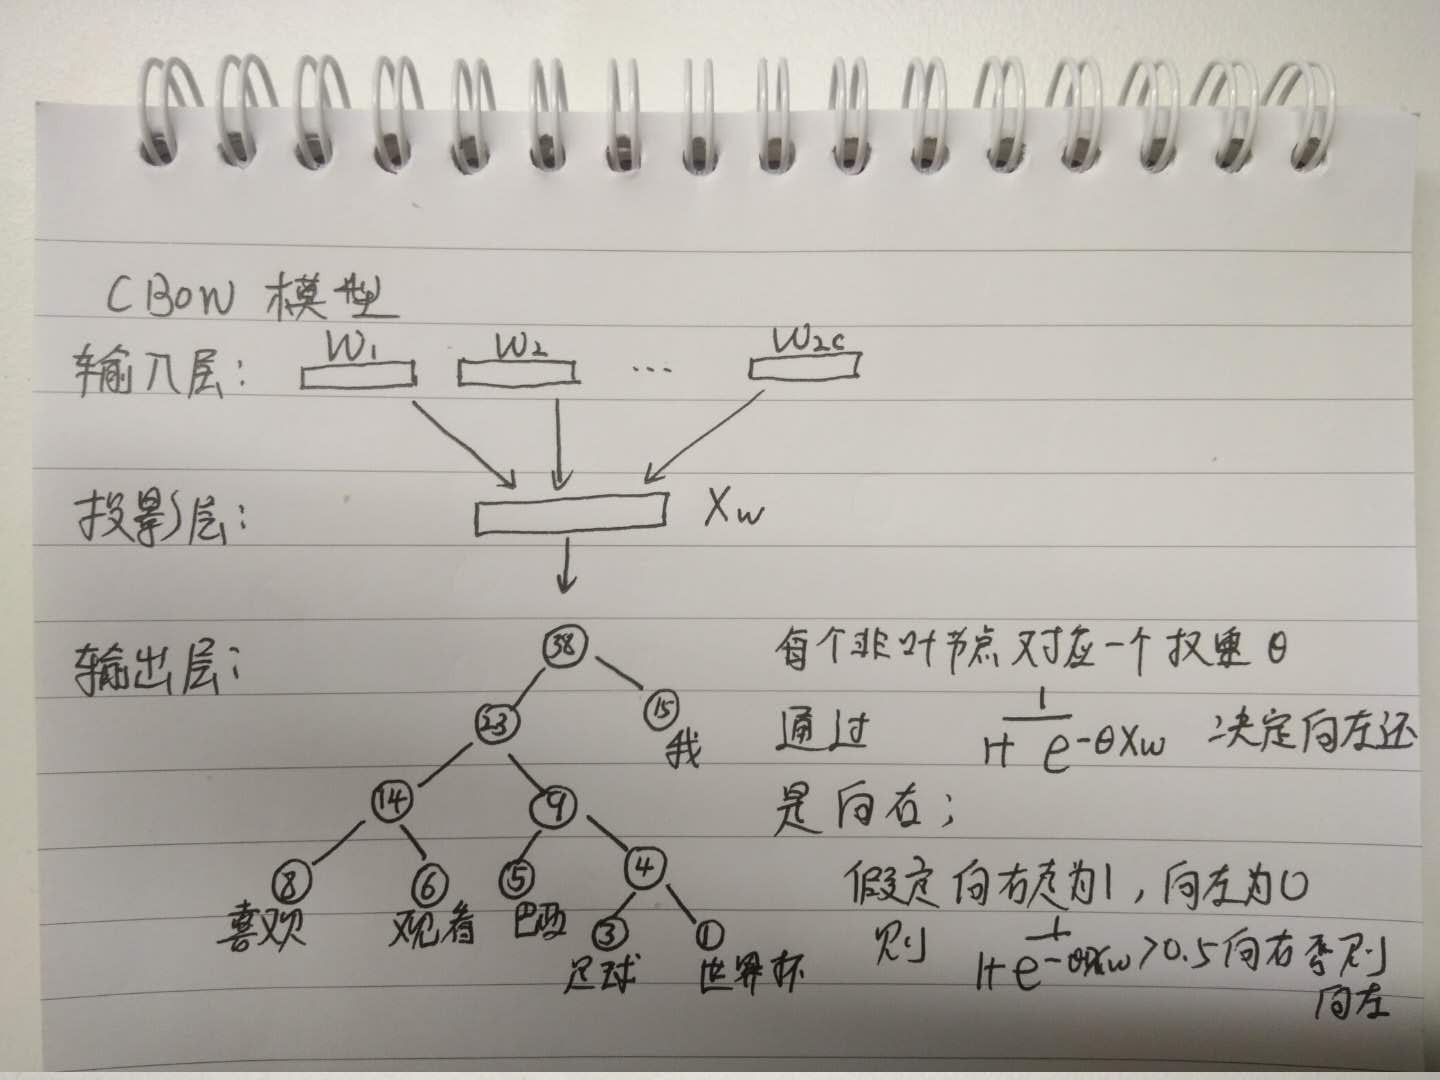 CBOW 模型
输入层: W₁ W₂ ... W₂c
投影层: Xw
输出层:
38
23 15
我
14 9
8 6 5 4
喜欢 观看 巴西
3 1
足球 世界杯
每个非叶节点对应一个权重 θ
通过 1/(1+e^-θXw) 决定向左还
是向右;
假定向右走为1,向左为0
则 1/(1+e^-θXw)>0.5向右否则
向左